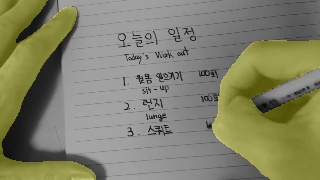 오늘의 일정
Today's Work out
1. 윗몸 일으키기 100회
sit-up
2. 런지 100회
lunge
3. 스쿼트